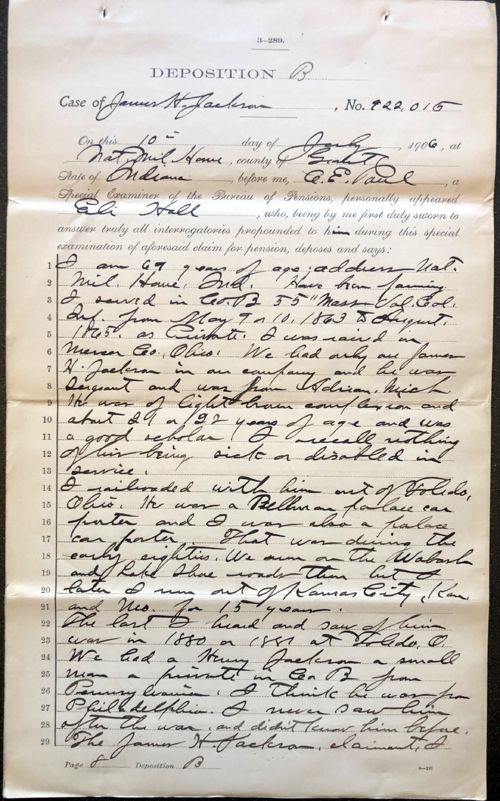 3—289.
DEPOSITION B
Case of James H. Jackson, No. 922,015
On this 10" day of July, 1906, at
Nat. Mil. Home, county of Grant
State of Indiana, before me, C. E. Paul, a
Special Examiner of the Bureau of Pensions, personally appeared
Eli Hall, who, being by me first duly sworn to
answer truly all interrogatories propounded to him during this special
examination of aforesaid claim for pension, deposes and says:
1 I am 69 years of age; address Nat.
2 Mil. Home, Ind. Have been farming
3 I served in Co. B 55" Mass. Vol. Col.
4 Inf. from May 9 or 10, 1863 to August,
5 1865. as Private. I was raised in
6 Mercer Co. Ohio. We had only one James
7 H. Jackson in our company and he was
8 Sergeant and was from Adrian, Mich
9 He was of light brown complexion and
10 about 21 or 22 years of age and was
11 a good scholar. I recall nothing
12 of his being sick or disabled in
13 service.
14 I railroaded with him out of Toledo,
15 Ohio. He was a Pullman palace car
16 porter and I was also a palace
17 car porter. That was during the
18 early eighties. We run on the Wabash
19 and Lake Shore roads then but I
20 later I run out of Kansas City, Kan
21 and Mo. for 15 years.
22 The last I heard and saw of him
23 was in 1880 or 1881 at Toledo, O.
24 We had a Henry Jackson a small
25 man a private in Co B from
26 Pennsylvania. I think he was from
27 Philadelphia. I never saw him
28 after the war, and didn't know him before.
29 The James H. Jackson, claimant, I
Page 8 Deposition B